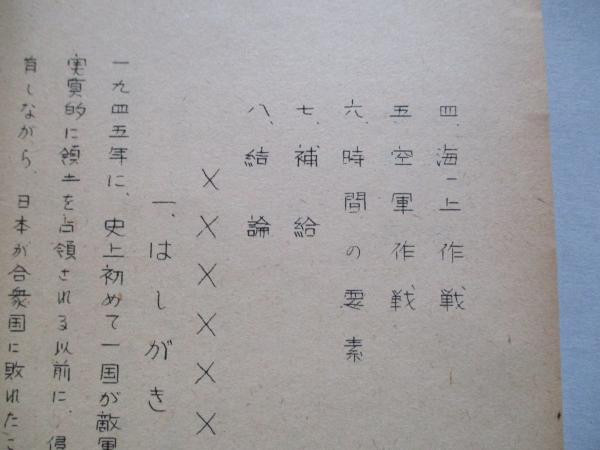 四、海上作戦
五、空軍作戦
六、時間の要素
七、補給
八、結論
××××××
一、はしがき
一九四五年に、史上初めて一国が敵軍
実質的に領土を占領される以前に、侵
首しながら、日本が合衆国に敗れたこ